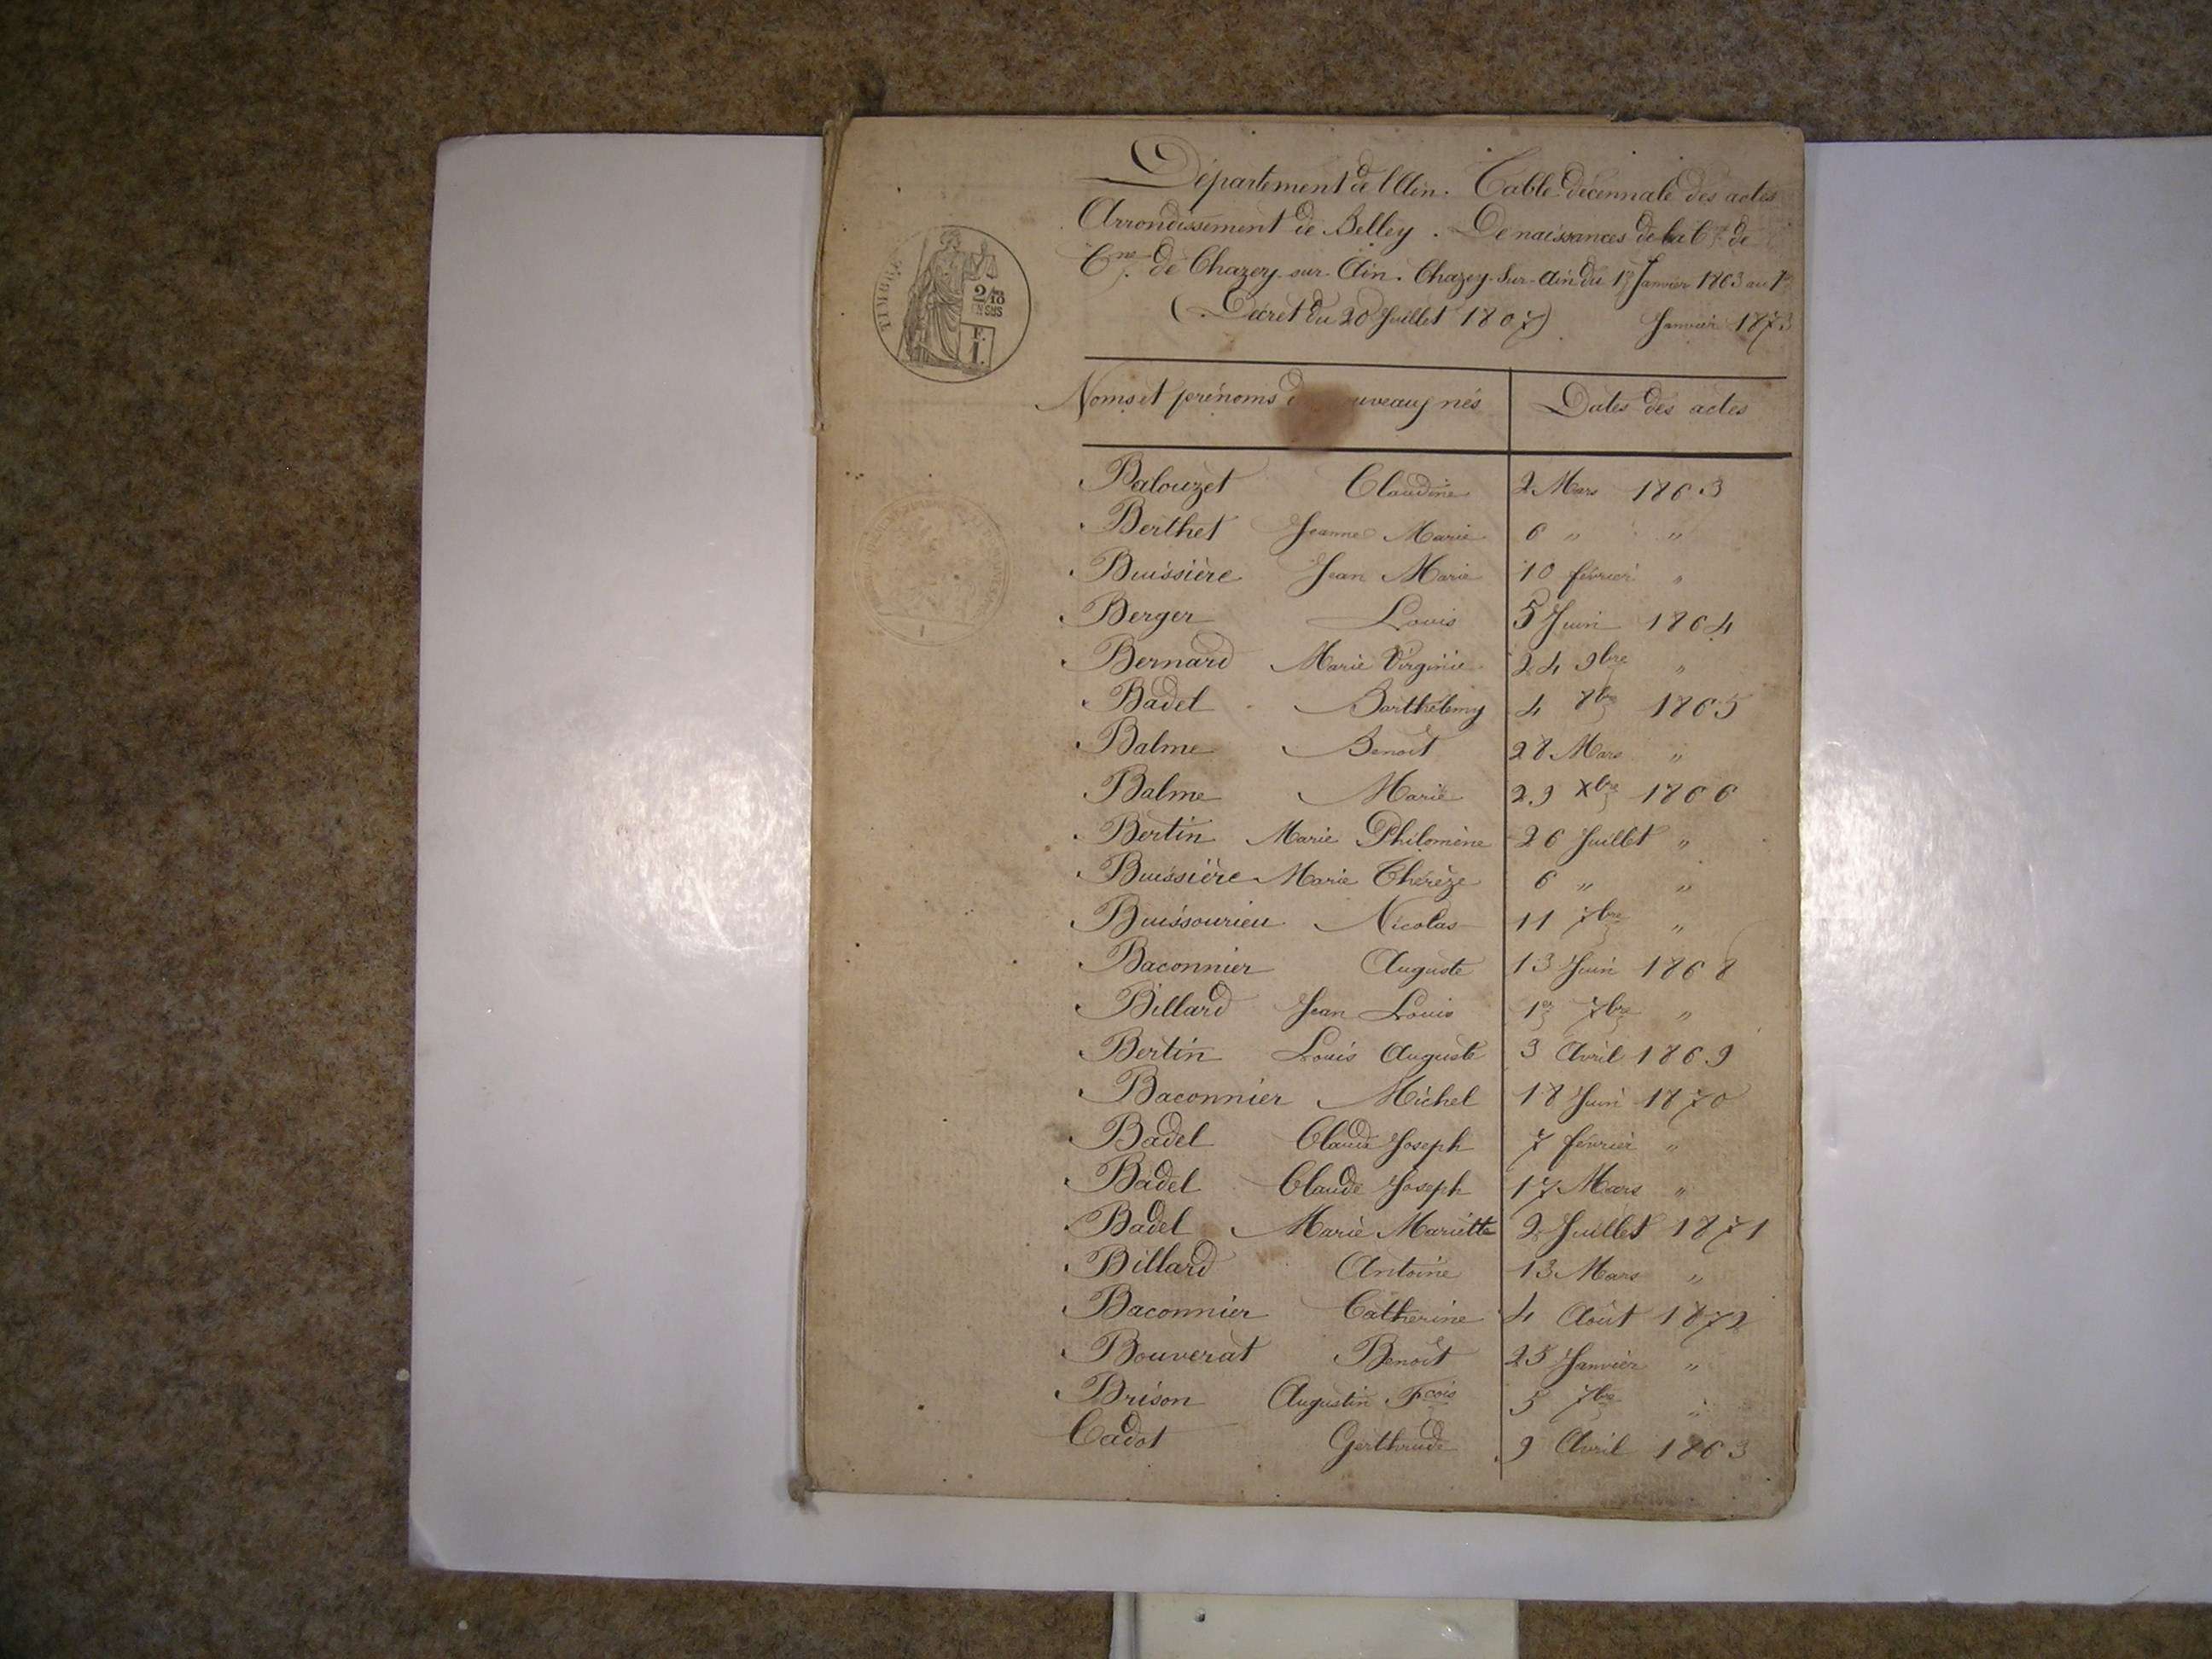 Département de l'Ain. Table décennale des actes
Arrondissement de Belley. De naissances de la Cne de
Cne de Chazey-sur-Ain. Chazey-sur-Ain du 1er Janvier 1863 au 1er
(Décret du 20 Juillet 1807) Janvier 1873
TIMBRE
2/10
EN SUS
E.
1.
Noms et prénoms nés Dates des actes
Balouzet Claudine 2 Mars 1863
Berthet Jeanne Marie 6 " "
Buissière Jean Marie 10 février "
Berger Louis 5 Juin 1864
Bernard Marie Virginie 24 9bre "
Badel Barthélemy 4 8bre 1865
Balme Benoît 28 Mars "
Balme Marie 29 Xbre 1866
Bertin Marie Philomène 26 Juillet "
Buissière Marie Thérèze 6 " "
Buissourieu Nicolas 11 7bre "
Baconnier Auguste 13 Juin 1868
Billard Jean Louis 1er 7bre "
Bertin Louis Auguste 3 Avril 1869
Baconnier Michel 18 Juin 1870
Badel Claude Joseph 7 février "
Badel Claude Joseph 17 Mars "
Badel Marie Mariette 2 Juillet 1871
Billard Antoine 13 Mars "
Baconnier Catherine 4 Août 1872
Bouverat Benoît 25 Janvier "
Brison Augustin Fcois 5 7bre "
Cadot Gerthrude 9 Avril 1863